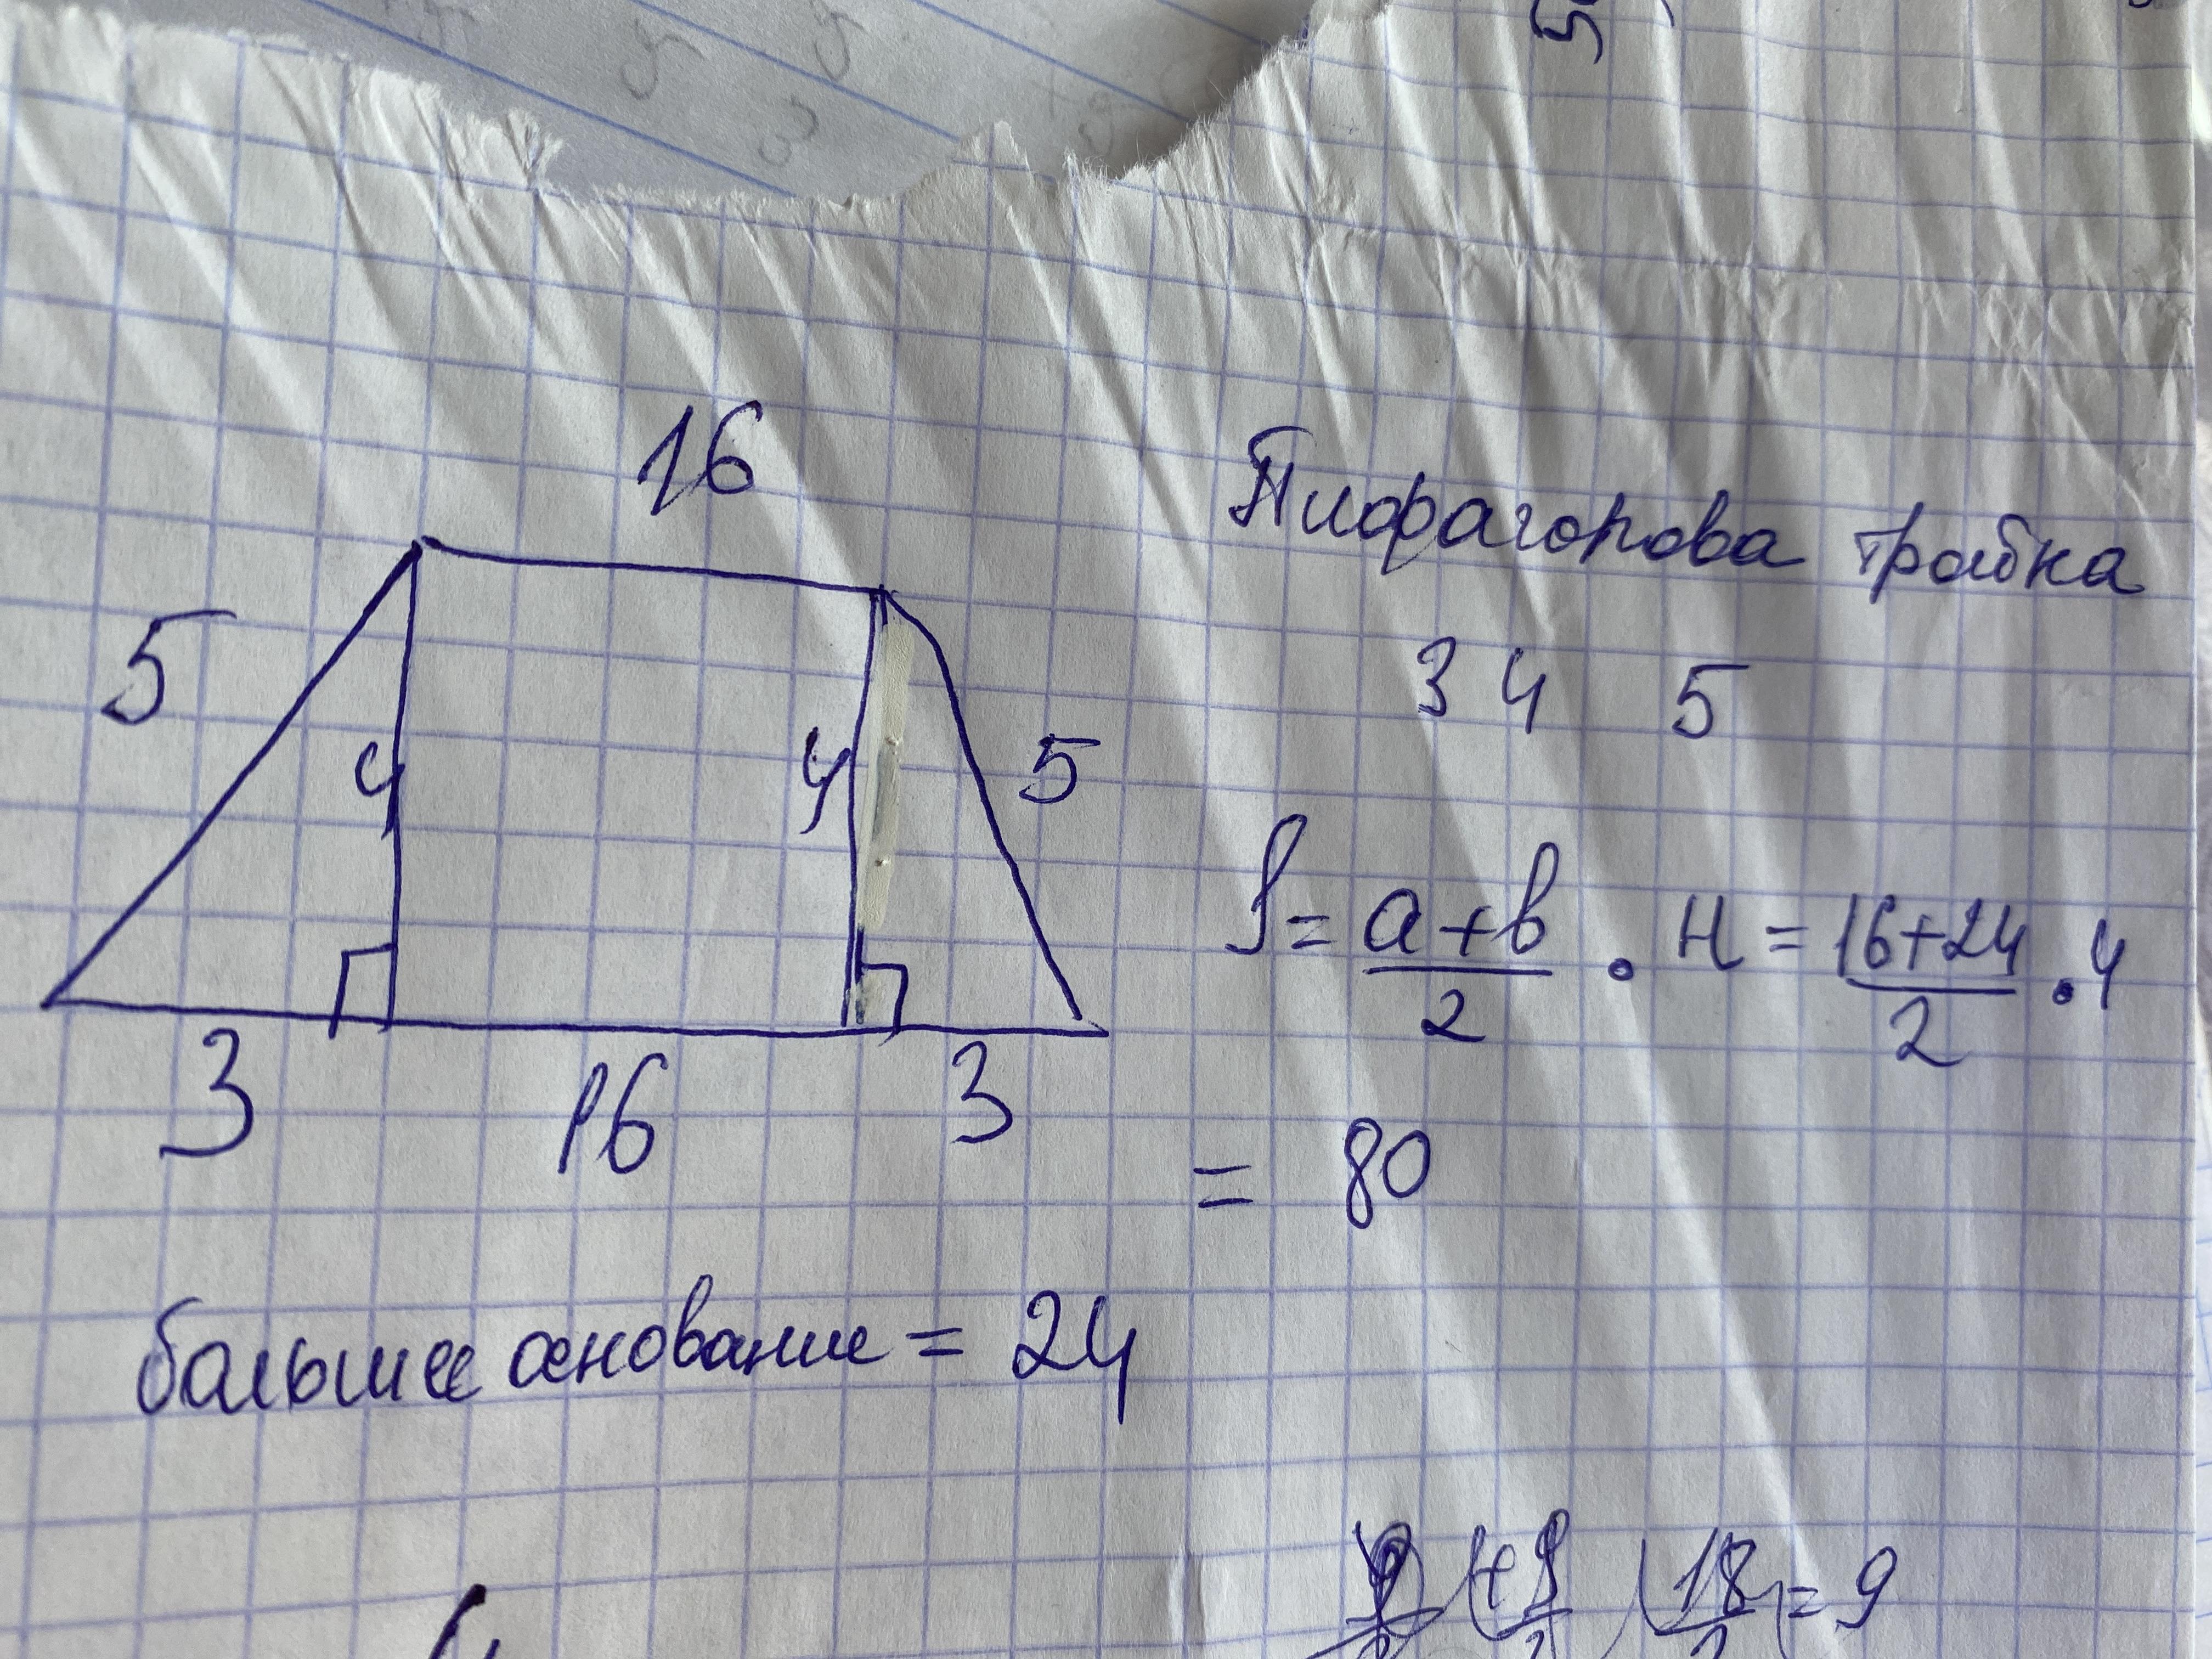 16
Пифагорова тройка
3 4 5
5
4
4
5
S = a + b / 2 · H = 16+24 / 2 · 4
3
16
3
= 80
большее основание = 24
18 = 9